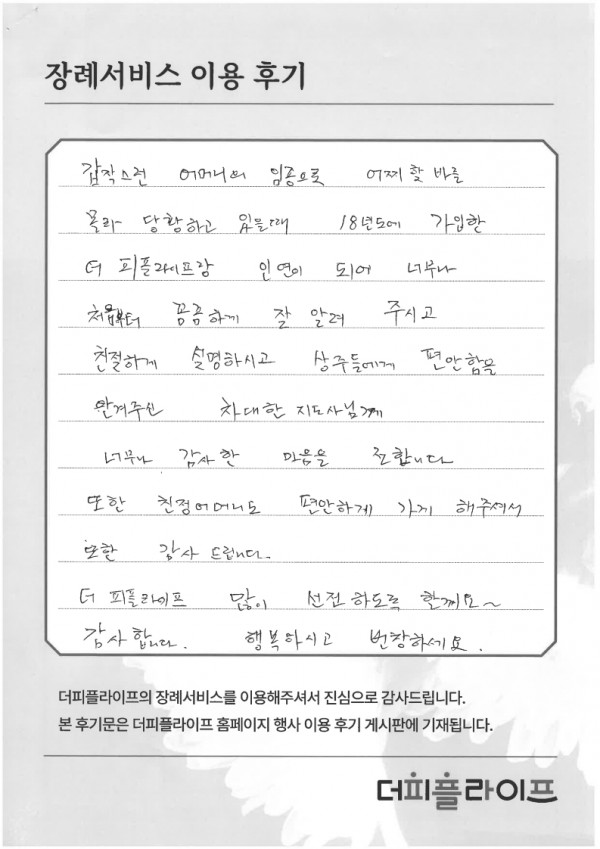 장례서비스 이용 후기
갑작스런 어머니의 임종으로 어찌할 바를
몰라 당황하고 있을때 18년도에 가입한
더 피플라이프랑 인연이 되어 너무나
처음부터 꼼꼼하게 잘 알려 주시고
친절하게 설명하시고 상주들에게 편안함을
안겨주신 차대한 지도사님께
너무나 감사한 마음을 전합니다
또한 친정어머니도 편안하게 가게 해주셔서
또한 감사 드립니다.
더 피플라이프 많이 선전 하도록 할께요~
감사합니다. 행복하시고 번창하세요.
더피플라이프의 장례서비스를 이용해주셔서 진심으로 감사드립니다.
본 후기문은 더피플라이프 홈페이지 행사 이용 후기 게시판에 기재됩니다.
더피플라이프